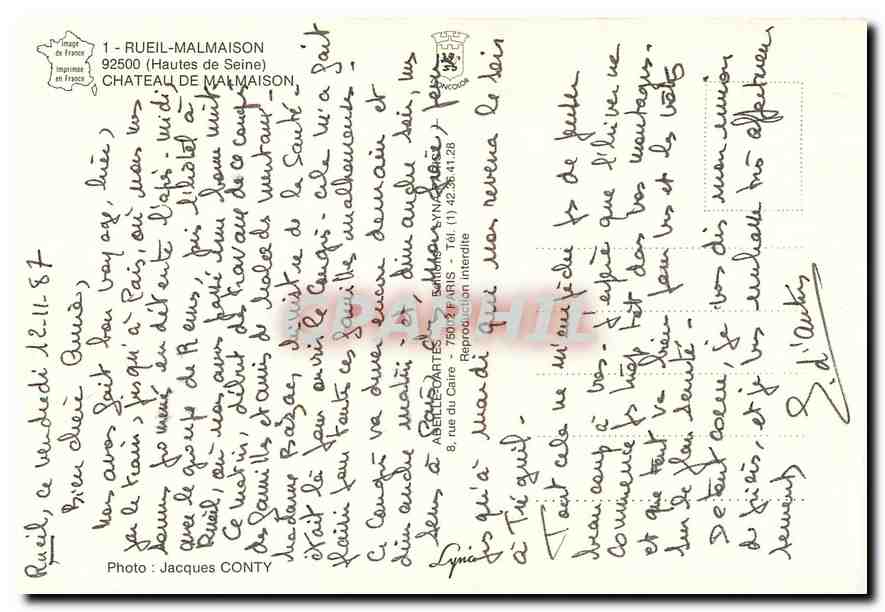 Image
de France
Imprimée
en France
1 - RUEIL-MALMAISON
92500 (Hautes de Seine)
CHATEAU DE MALMAISON
LYNCOLOR
Rueil, ce vendredi 12-11-87
Bien chère
Nous avons fait bon voyage, hier,
par le train, jusqu'à Paris, où nous nous
sommes promené en détente l'après-midi,
avec le groupe de Rennes, puis l'hôtel à
Rueil, où nous avons passé une bonne nuit
Ce matin, début des travaux de ce congrès
des familles et amis de malades mentaux -
Madame Barzac, Ministre de la Santé -
était là pour ouvrir le Congrès - cela m'a fait
plaisir pour toutes ces familles malheureuses -
Ce Congrès va durer encore demain et
dimanche matin - et, dimanche soir, nous
serons à Paris chez
jusqu'à mardi qui nous revena le soir
à Tréguil -
Tout cela ne m'empêche pas de penser
beaucoup à vous - J'espère que l'hiver ne
commence pas trop tôt dans vos montagnes -
et que tout va bien pour vous et les vôtres
sur le plan santé -
De tout coeur, je vous dis mon union
de prières, et je vous embrasse très affectueu
sement
ABEILLE-CARTES - Editions LYNA-PARIS
8, rue du Caire - 75002 PARIS - Tél. (1) 42.36.41.28
Reproduction interdite
Lyna
Photo : Jacques CONTY
CPAPHIL